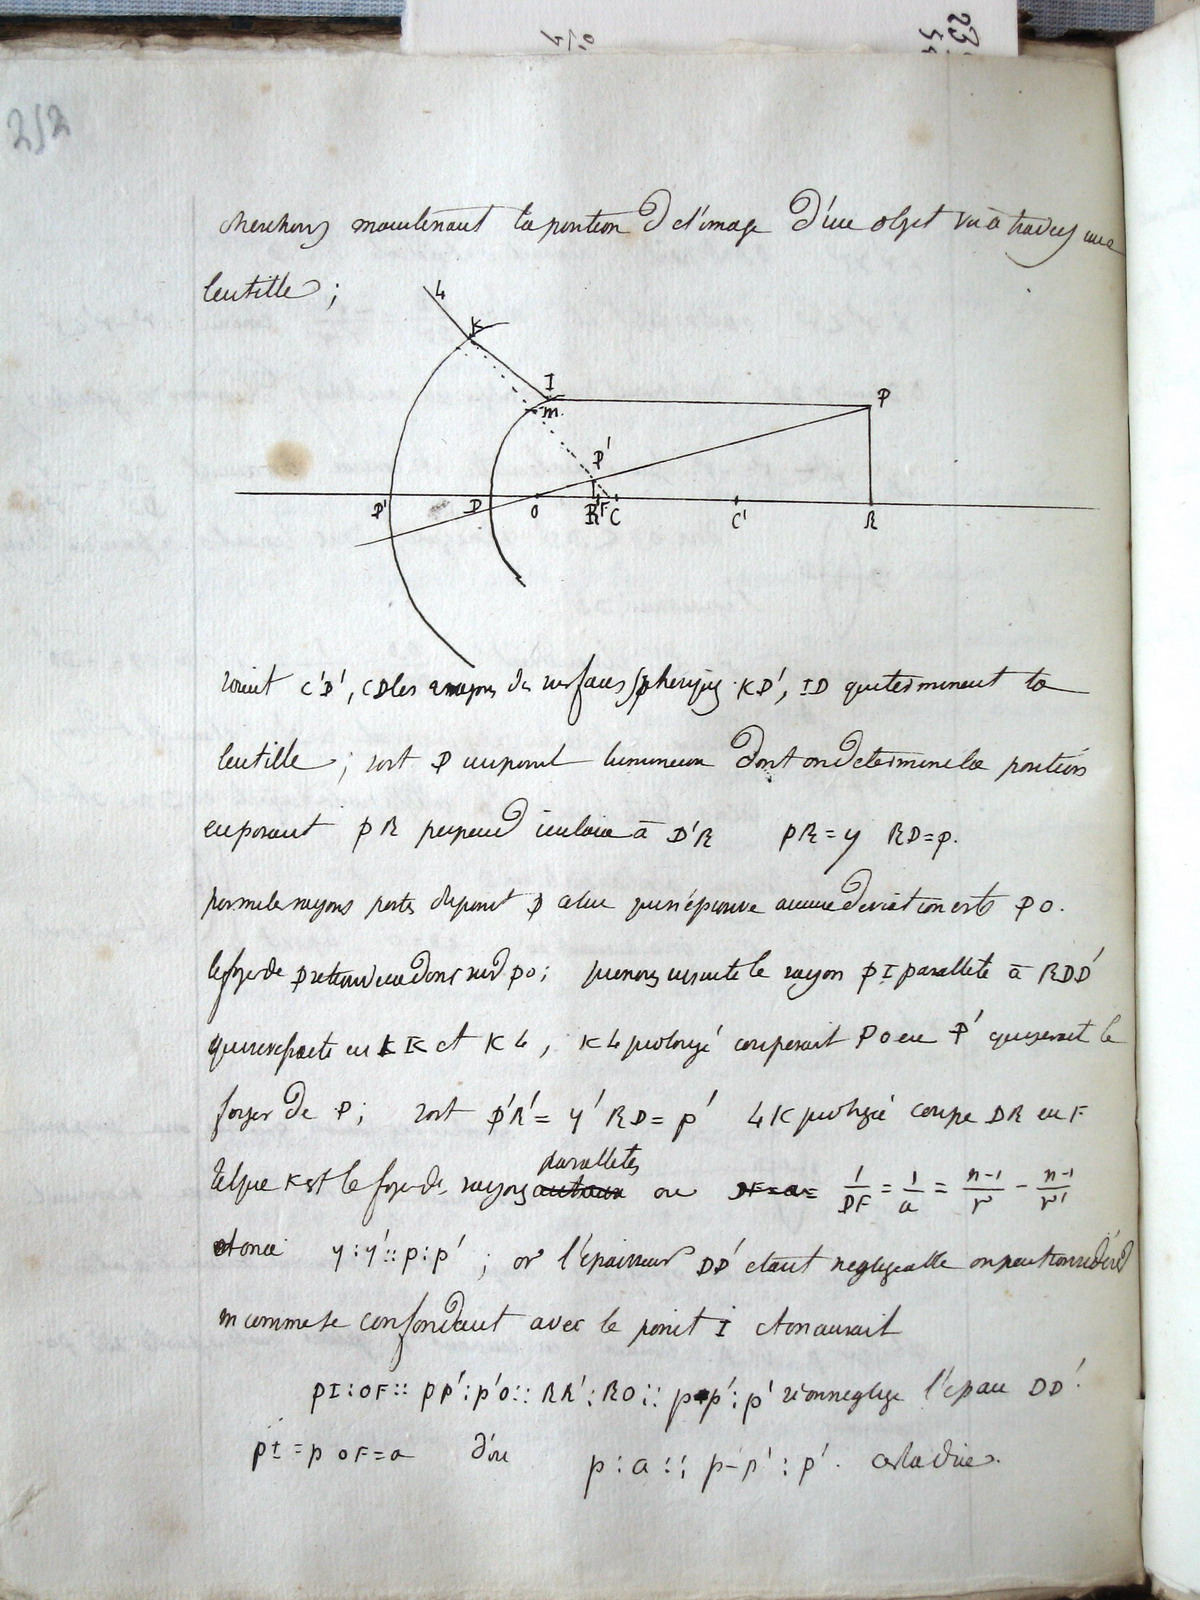 252
cherchons maintenant la position de l'image d'une objet vu à travers une
lentille ;
4
K
I
m
P
P'
D'
D
O
R'
F
C
C'
R
soient C'D', CD les rayons des surfaces spheriques KD', ID qui terminent la
lentille ; soit P un point lumineux dont on determine la position
en posant PR perpendiculaire à D'R PR = y RD = p.
parmi les rayons partis du point P celui qui n'éprouve aucune deviation est PO.
le foyer de P se trouvera donc sur PO ; prenons ensuite le rayon PI parallele à RDD'
qui se refracte en IK et K4, K4 prolongé couperait PO en P' qui serait le
foyer de P ; soit P'R' = y' RD = p' 4K prolongé coupe DR en F
tel que F est le foyer des rayons paralleles ou 1/DF = 1/a = n-1/r - n-1/r'
donc y : y' :: p : p' ; or l'épaisseur DD' etant negligeable on peut considérer
m comme se confondant avec le point I et on aurait
PI : OF :: PP' : P'O :: RR' : RO :: p-p' : p' si on neglige l'épais DD'.
PI = p OF = a d'ou p : a :: p-p' : p'. c'est a dire.